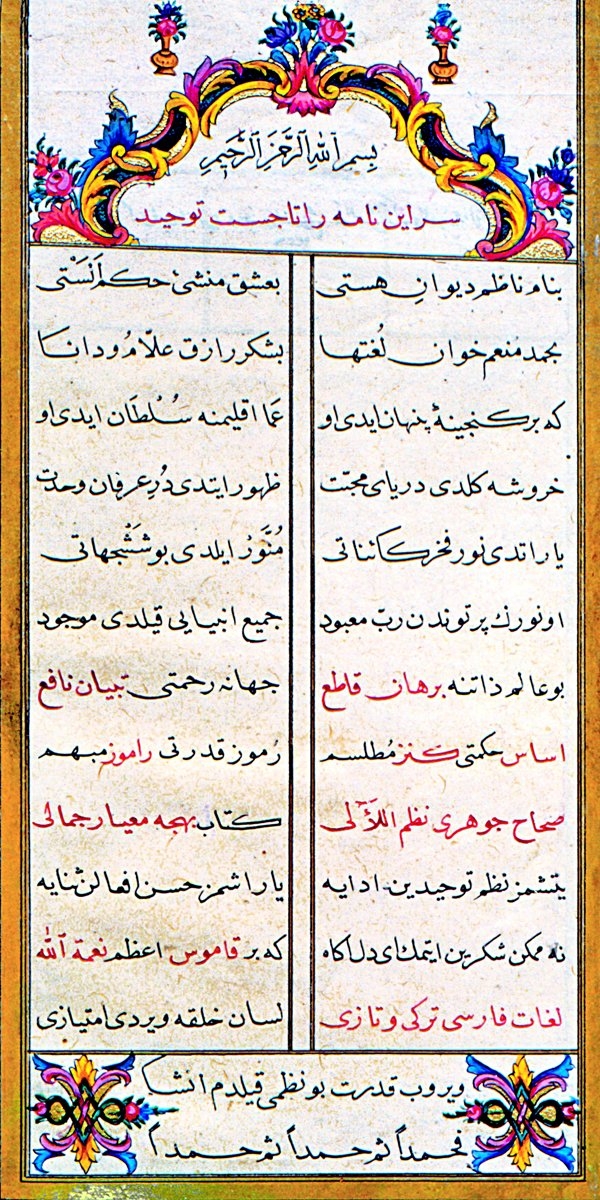 بسم الله الرحمن الرحيم
سر اين نامه را تاجست توحيد
بنام ناظم ديوان هستی بعشق منشئ حكم الستی
بحمد منعم خوان لغتها بشكر رازق علام و دانا
كه بر كنجينهٔ پنهان ايدی او عما اقليمنه سلطان ايدی او
خروشه كلدی دريای محبت ظهور ايتدی در عرفان وحدت
ياراتدی نور فخر كائناتی منور ايلدی بو ششجهاتی
او نورك پرتوندن رب معبود جميع انبيايی قيلدی موجود
بو عالم ذاتنه برهان قاطع جهانه رحمتی تبيان نافع
اساس حكمتی كنز مطلسم رموز قدرتی راموز مبهم
صحاح جوهری نظم اللآلی كتاب بهجه معيار جمالی
يتشمز نظم توحيدين ادايه ياراشمز حسن افعالن ثنايه
نه ممكن شكرين ايتمك ای دل آكاه كه بر قاموس اعظم نعمة الله
لغات فارسی تركی و تازی لسان خلقه ويردی امتيازی
ويروب قدرت بو نظمی قيلدم انشا
فحمداً ثم حمداً ثم حمداً